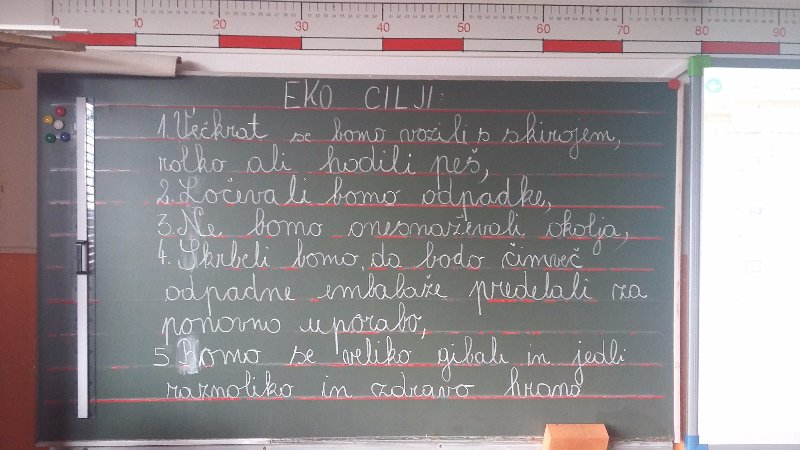 10 20 30 40 50 60 70 80 90
EKO CILJI:
1. Večkrat se bomo vozili s skirojem,
rolko ali hodili peš,
2. Ločevali bomo odpadke,
3. Ne bomo onesnaževali okolja,
4. Skrbeli bomo, da bodo čimveč
odpadne embalaže predelali za
ponovno uporabo,
5 Bomo se veliko gibali in jedli
raznoliko in zdravo hrano